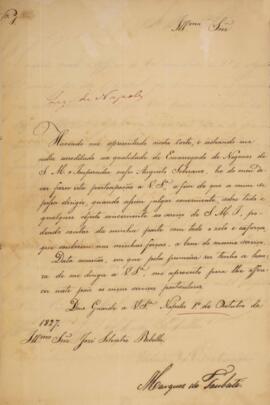 Illmo Snr
Leg. de Napoles
Havendo me apresentado nesta Corte, e achando me
nella acreditado na qualidade de Encarregado de Negocios de
S. M. o Imperador nosso Augusto Soberano, he do meu de-
ver fazer esta participação a V. Sa. a fim de que a mim se
possa dirigir, quando assim julgar conveniente, sobre todo e
qualquer objeto concernente ao serviço de S. M. I., po-
dendo contar da minha parte com todo o zelo e esforço
que couberem nas minhas forças, a bem do mesmo serviço.
Nesta occasião, em que pela primeira vez tenho a hon-
ra de me dirigir a V. Sa. me apresento para lhe offere-
cer nesta para os seus serviços particulares.
Deos Guarde a V. Sa. Napoles 1º de Outubro de
1827.
Illmo Snr José Silvestre Rebello.
Marquez de Taubaté